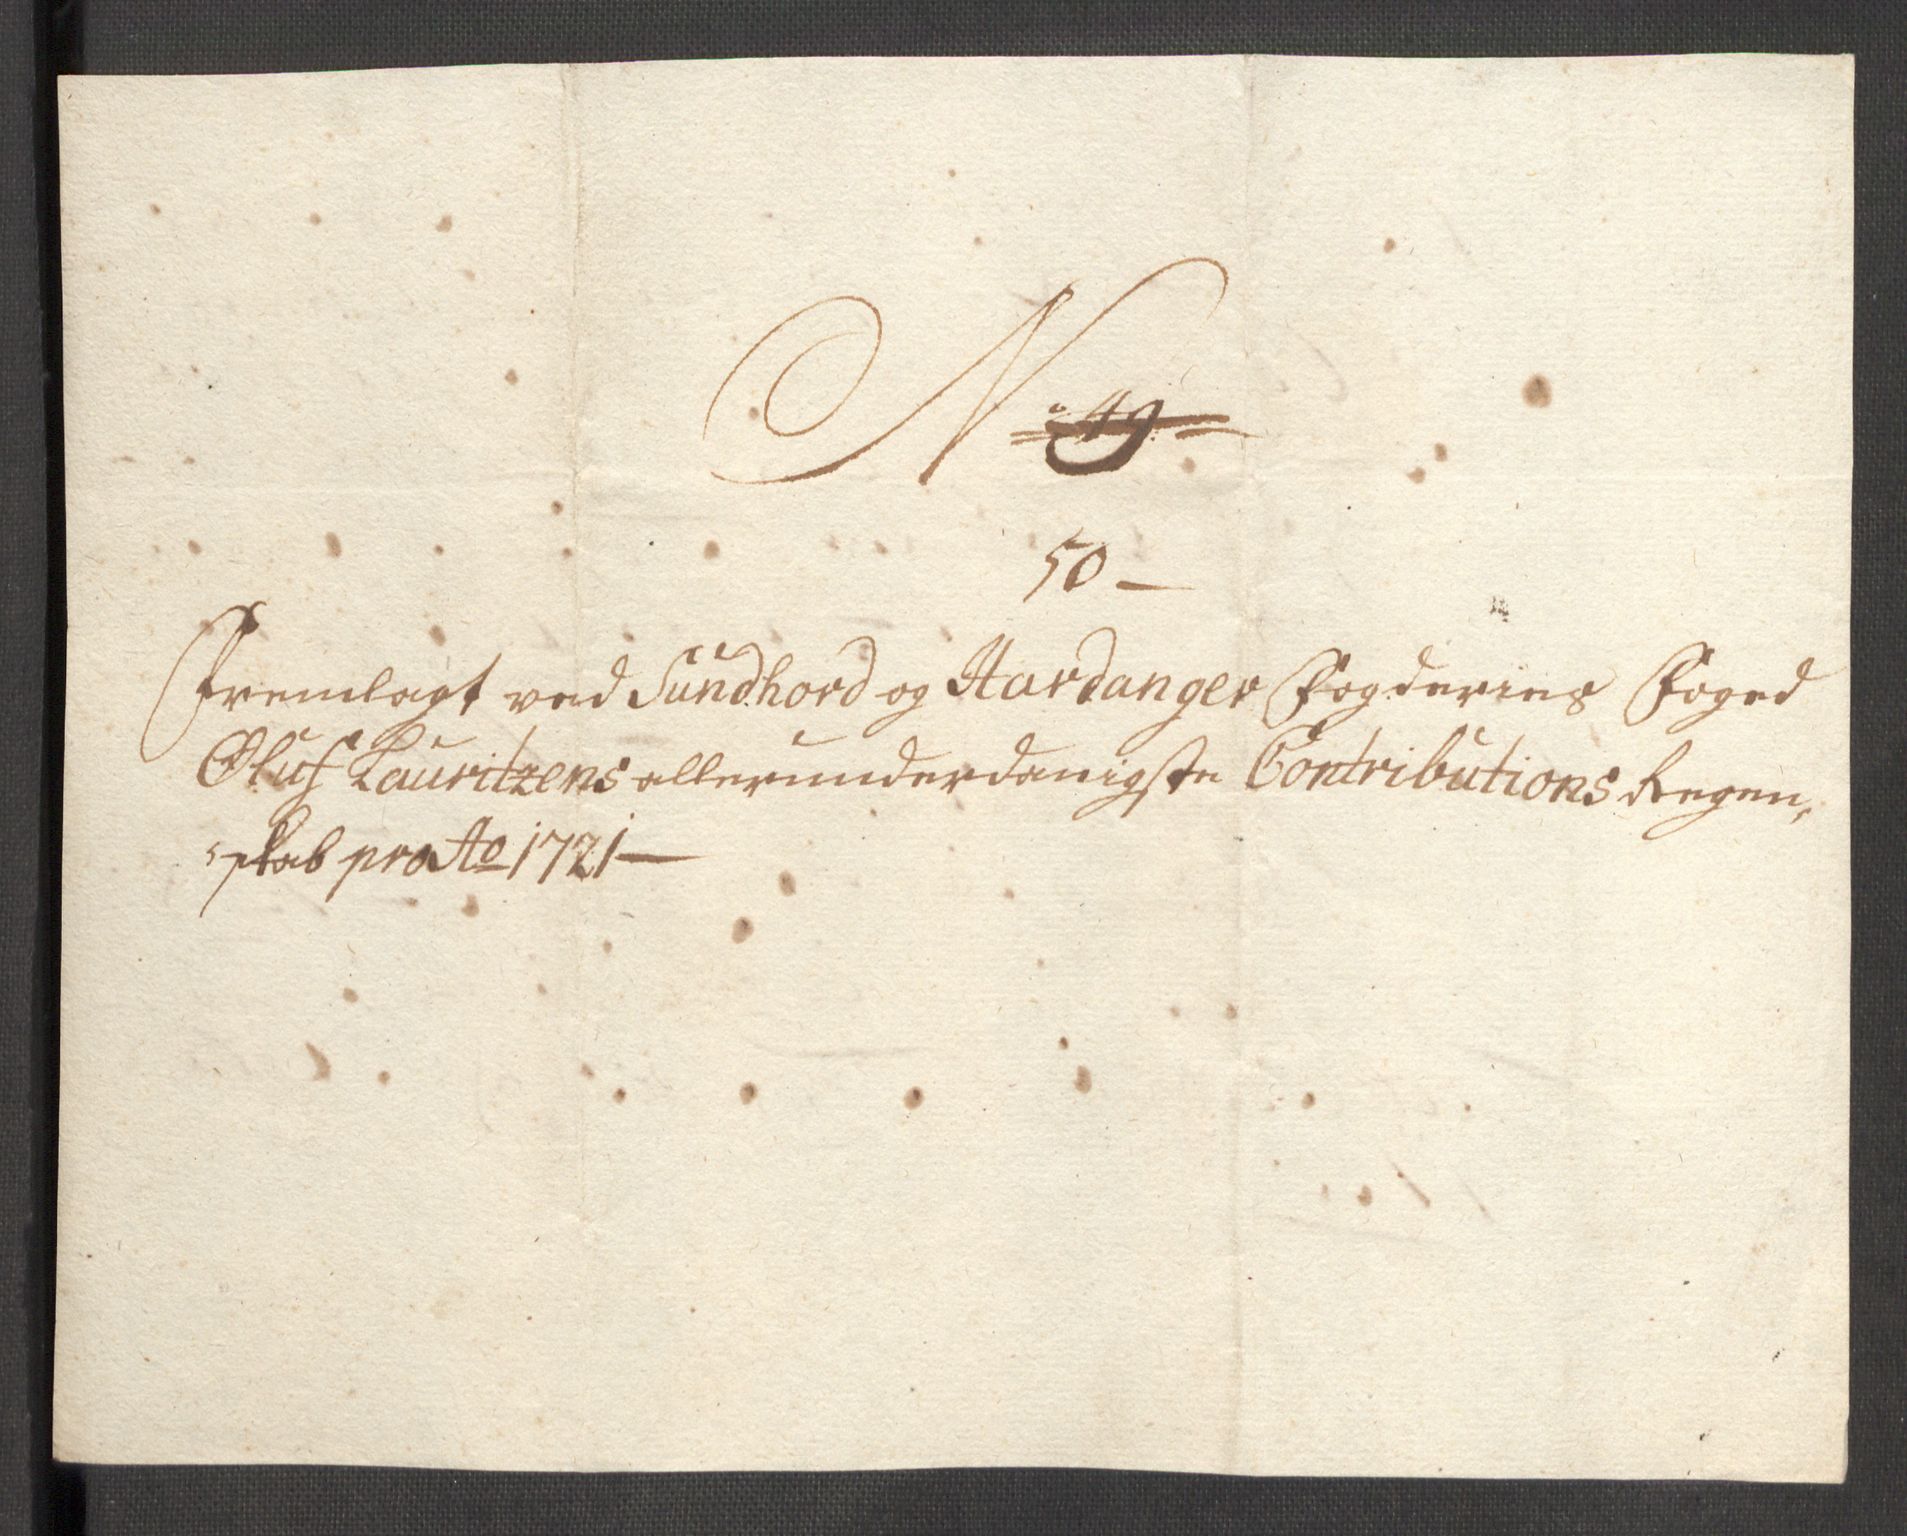 No 49
50 —
Fremlagt ved Sundhord og Hardanger Fogderies Foged
Oluf Lauritzens allerunderdanigste Contributions Regen,
skab pro Ao 1721 —